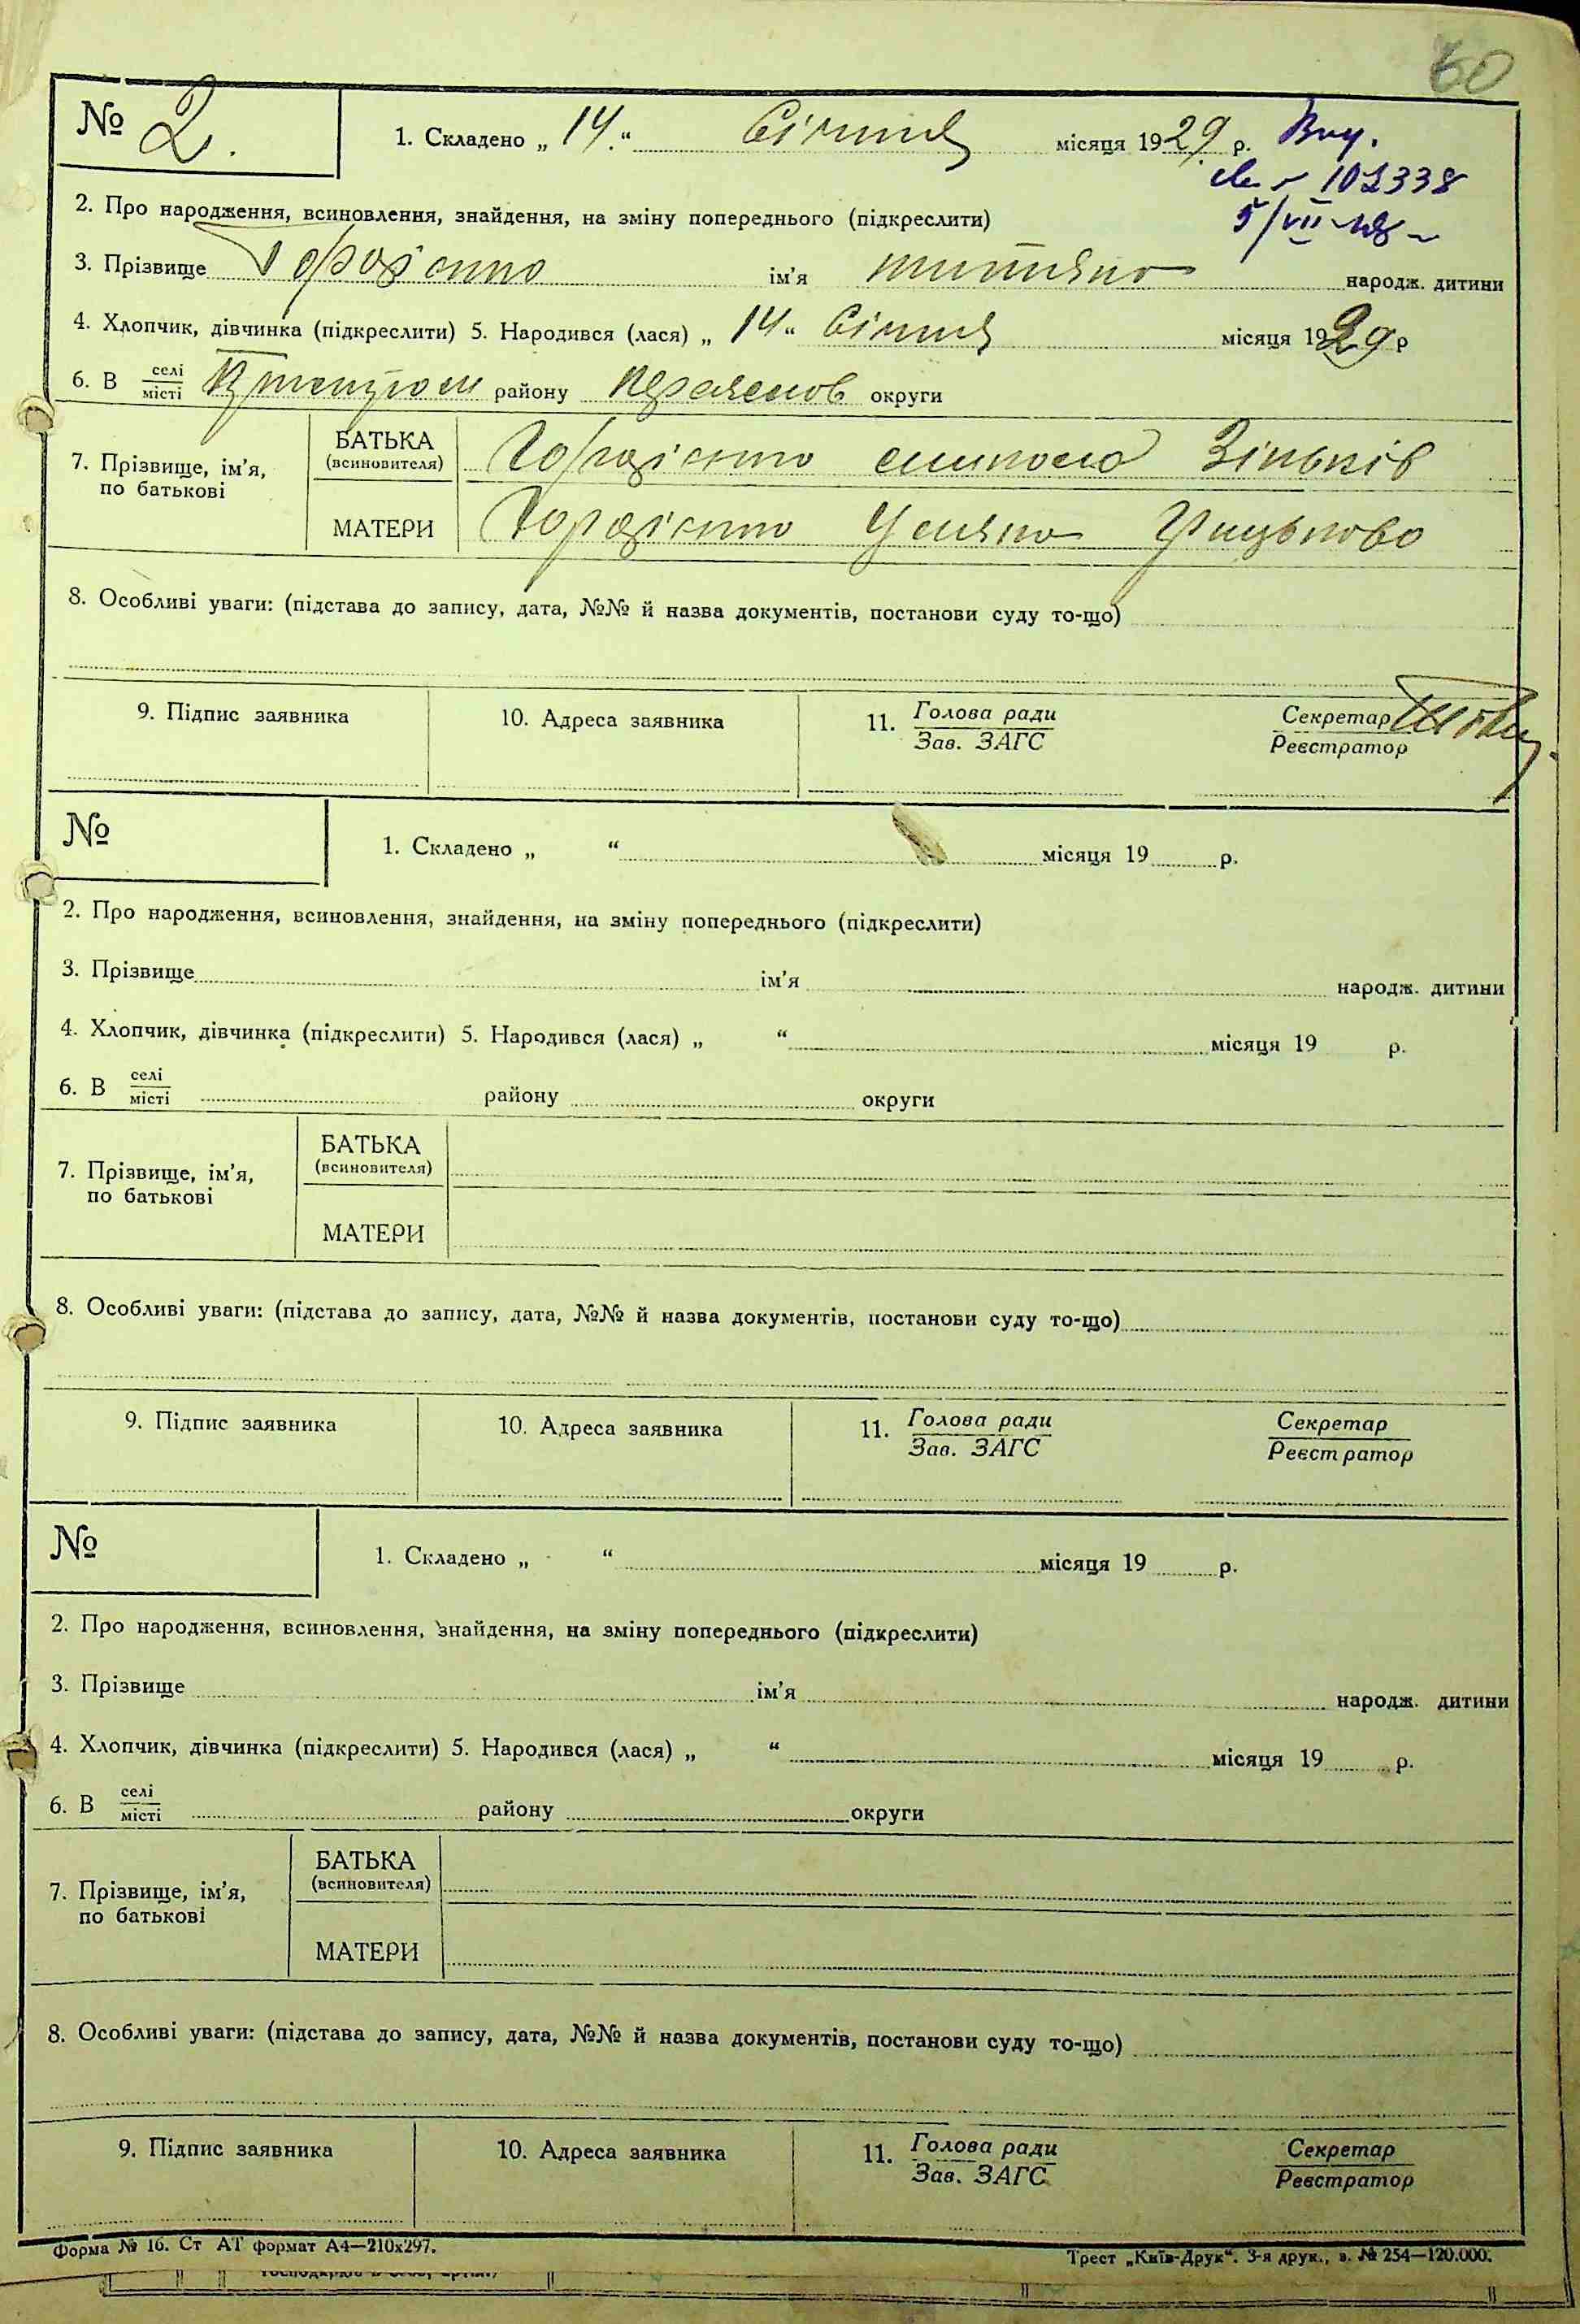 60
№ 2. 1. Складено „ 14. “ Січня місяця 1929 р. Вид.
св. № 102338
5/VII-48
2. Про народження, всиновлення, знайдення, на зміну попереднього (підкреслити)
3. Прізвище ім’я Титяна народж. дитини
4. Хлопчик, дівчинка (підкреслити) 5. Народився (лася) „ 14 “ Січня місяця 1929 р
6. В селі / місті району округи
7. Прізвище, ім’я, по батькові БАТЬКА (всиновителя) Зіньків
МАТЕРИ Уляна Грицькова
8. Особливі уваги: (підстава до запису, дата, №№ й назва документів, постанови суду то-що)
9. Підпис заявника 10. Адреса заявника 11. Голова ради / Зав. ЗАГС Секретар / Реєстратор
№ 1. Складено „ “ місяця 19 р.
2. Про народження, всиновлення, знайдення, на зміну попереднього (підкреслити)
3. Прізвище ім’я народж. дитини
4. Хлопчик, дівчинка (підкреслити) 5. Народився (лася) „ “ місяця 19 р.
6. В селі / місті району округи
7. Прізвище, ім’я, по батькові БАТЬКА (всиновителя)
МАТЕРИ
8. Особливі уваги: (підстава до запису, дата, №№ й назва документів, постанови суду то-що)
9. Підпис заявника 10. Адреса заявника 11. Голова ради / Зав. ЗАГС Секретар / Реєстратор
№ 1. Складено „ “ місяця 19 р.
2. Про народження, всиновлення, знайдення, на зміну попереднього (підкреслити)
3. Прізвище ім’я народж. дитини
4. Хлопчик, дівчинка (підкреслити) 5. Народився (лася) „ “ місяця 19 р.
6. В селі / місті району округи
7. Прізвище, ім’я, по батькові БАТЬКА (всиновителя)
МАТЕРИ
8. Особливі уваги: (підстава до запису, дата, №№ й назва документів, постанови суду то-що)
9. Підпис заявника 10. Адреса заявника 11. Голова ради / Зав. ЗАГС Секретар / Реєстратор
Форма № 16. Ст АТ формат А4—210х297. Трест „Київ-Друк“. 3-я друк., з. № 254—120.000.